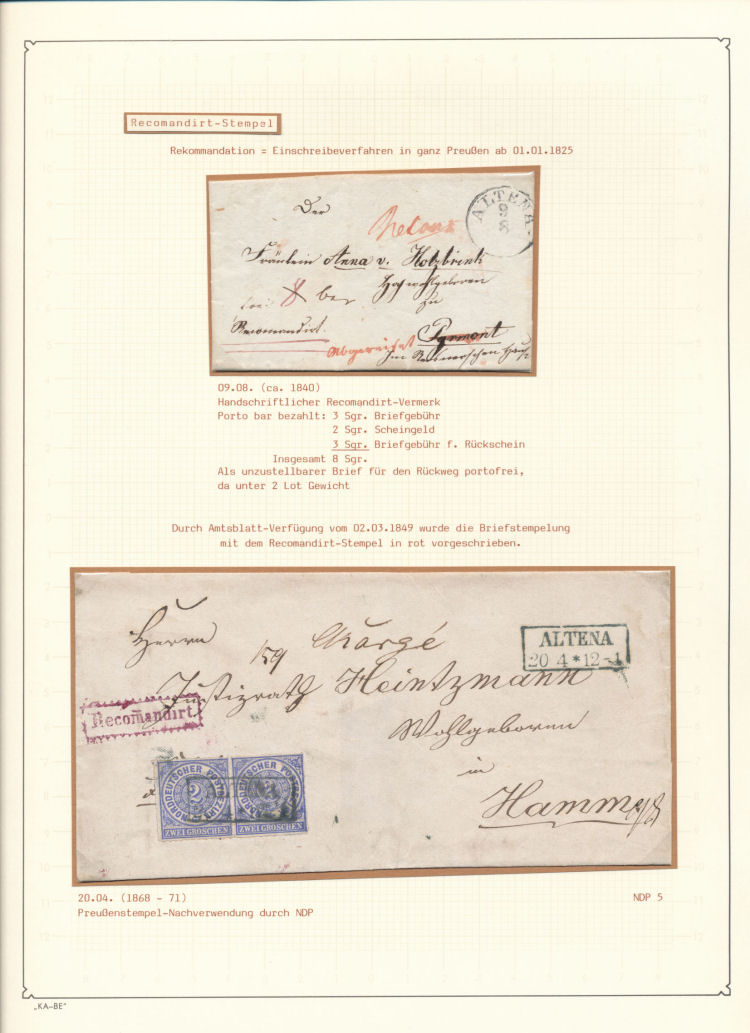 Recomandirt-Stempel
Rekommandation = Einschreibeverfahren in ganz Preußen ab 01.01.1825
Der
Retour
ALTENA
Fräulein Anna v. Holzbrink
Hochwohlgeboren
frei 8
zu
Recomandirt.
Pyrmont
09.08. (ca. 1840)
Handschriftlicher Recomandirt-Vermerk
Porto bar bezahlt: 3 Sgr. Briefgebühr
2 Sgr. Scheingeld
3 Sgr. Briefgebühr f. Rückschein
Insgesamt 8 Sgr.
Als unzustellbarer Brief für den Rückweg portofrei,
da unter 2 Lot Gewicht
Durch Amtsblatt-Verfügung vom 02.03.1849 wurde die Briefstempelung
mit dem Recomandirt-Stempel in rot vorgeschrieben.
Herrn
159
Chargé
ALTENA
20 4 * 12-1
Justizrath Heintzmann
Recomandirt
Wohlgeboren
in
NORDDEUTSCHER POSTBEZIRK
2
ZWEI GROSCHEN
NORDDEUTSCHER POSTBEZIRK
ZWEI GROSCHEN
ALTENA
Hamm
20.04. (1868 - 71)
NDP 5
Preußenstempel-Nachverwendung durch NDP
„KA-BE"